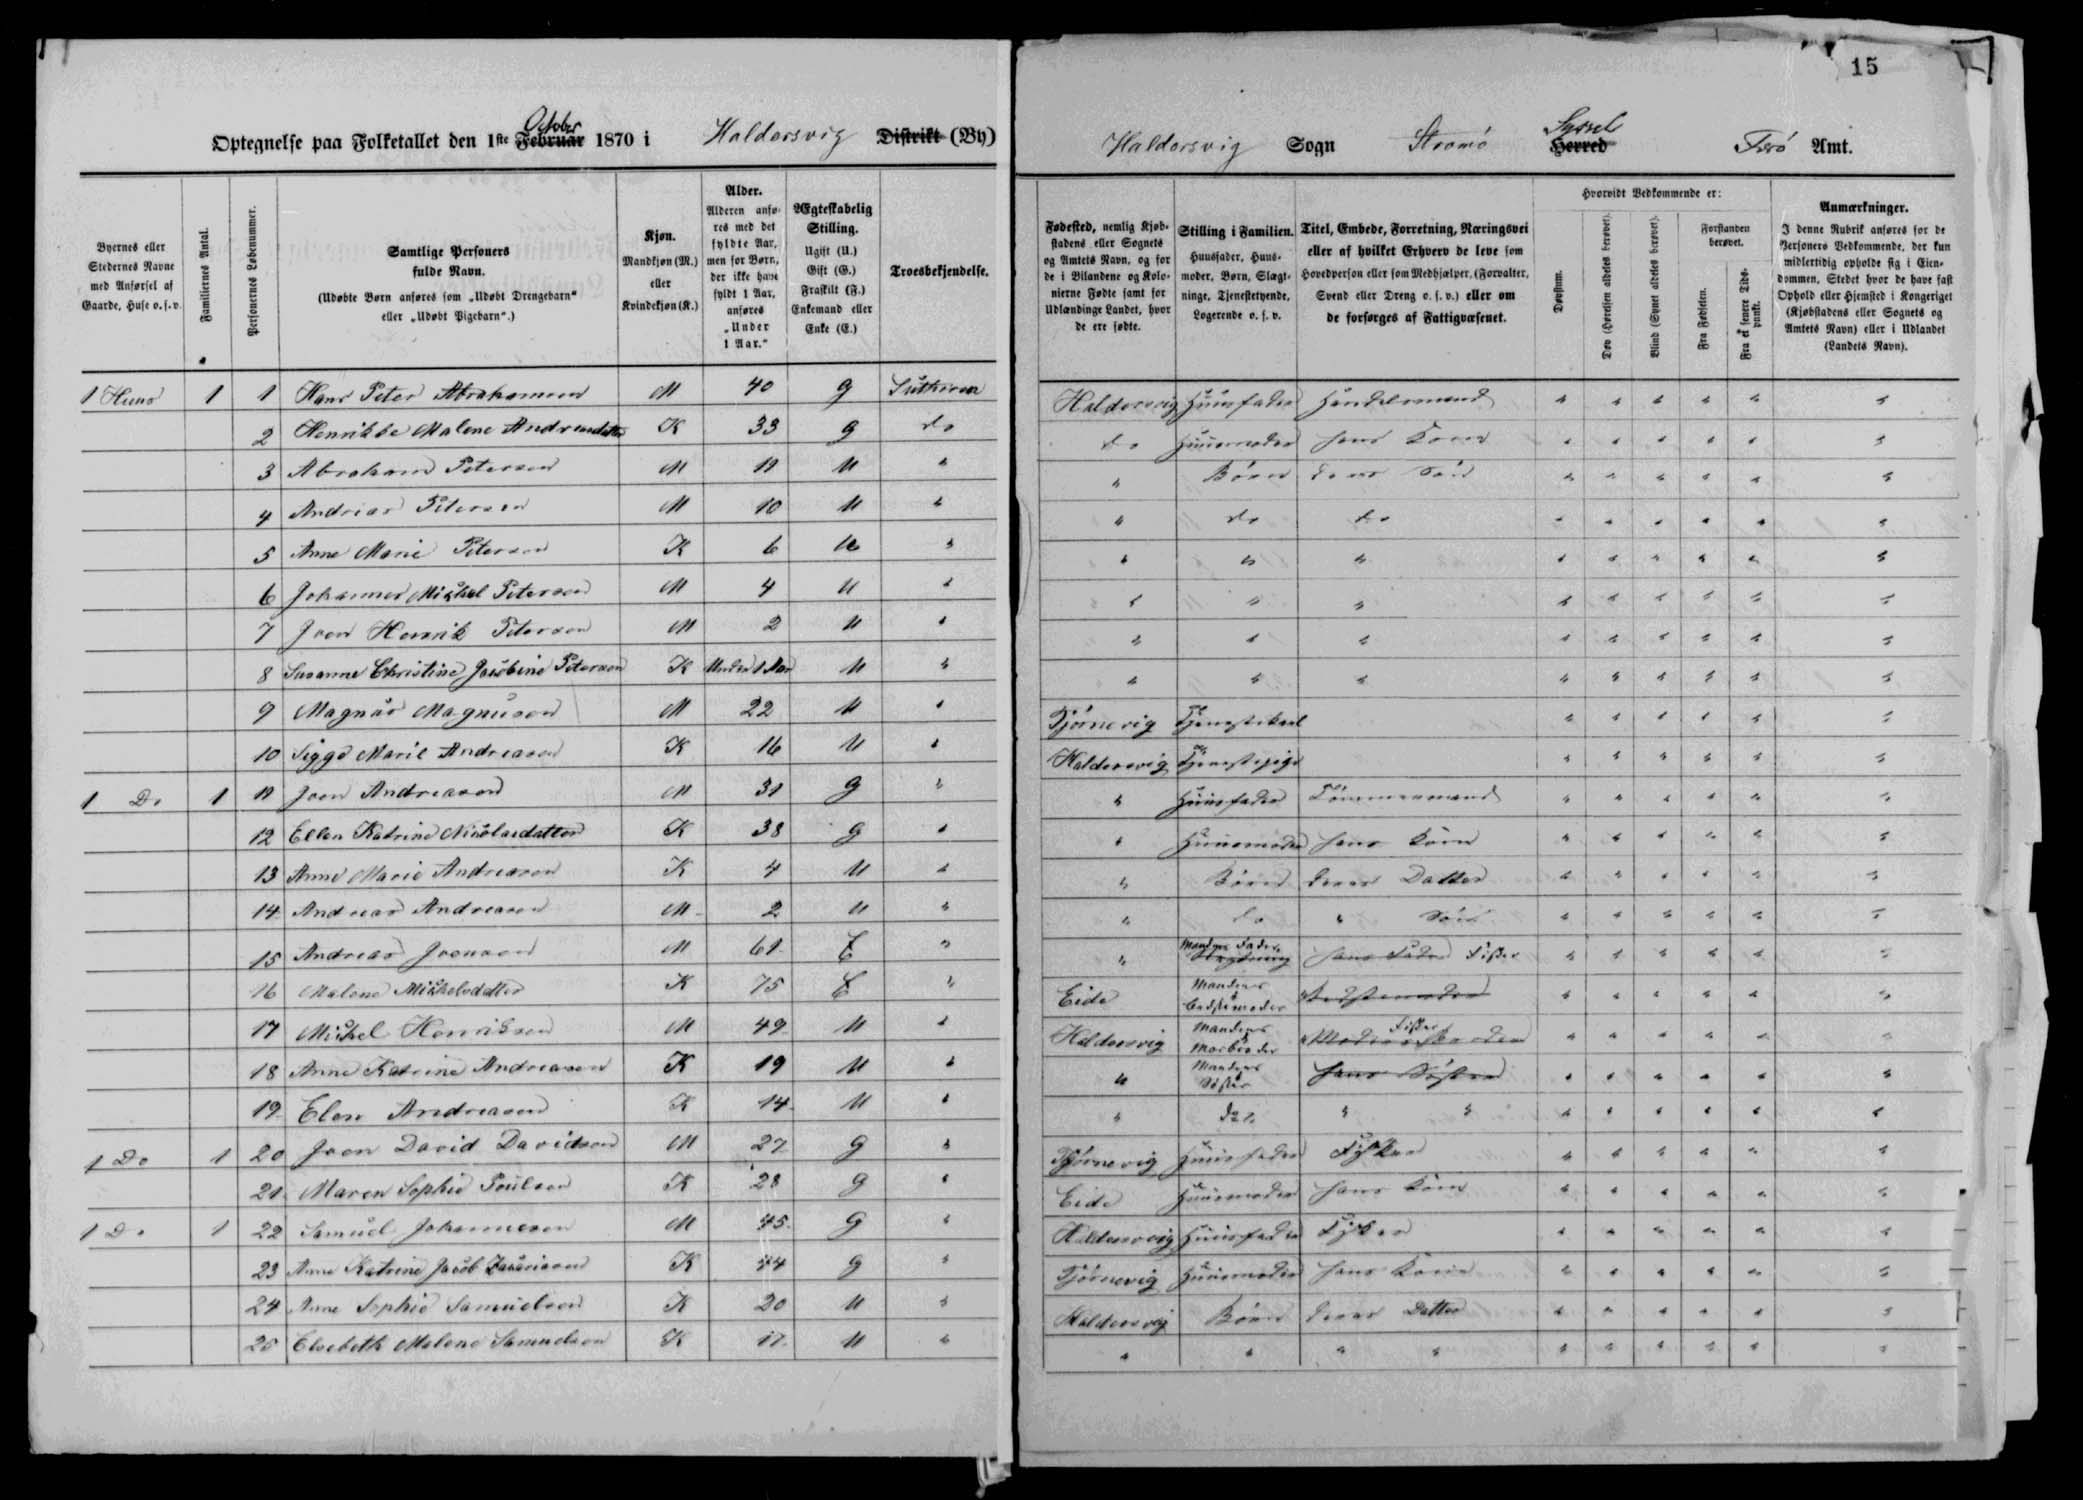 15
Optegnelse paa Folketallet den 1ste Februar October 1870 i Haldorsvig Distrikt (By)
Haldorsvig Sogn Strømø Herred Syssel Færø Amt.
Byernes eller Stedernes Navne med Anførsel af Gaarde, Huse o. s. v.
Familiernes Antal.
Personernes Løbenummer.
Samtlige Personers fulde Navn.
(Udøbte Børn anføres som „Udøbt Drengebarn“ eller „Udøbt Pigebarn“.)
Kjøn.
Mandkjøn (M.) eller Kvindekjøn (K.)
Alder.
Alderen anføres med det fyldte Aar, men for Børn, der ikke have fyldt 1 Aar, anføres „Under 1 Aar.“
Ægteskabelig Stilling.
Ugift (U.) Gift (G.) Fraskilt (F.) Enkemand eller Enke (E.)
Troesbekjendelse.
Fødested, nemlig Kjøbstadens eller Sognets og Amtets Navn, og for de i Bilandene og Kolonierne Fødte samt for Udlændinge Landet, hvor de ere fødte.
Stilling i Familien.
Huusfader, Huusmoder, Børn, Slægtninge, Tjenestetyende, Logerende o. s. v.
Titel, Embede, Forretning, Næringsvei eller af hvilket Erhverv de leve som Hovedperson eller som Medhjælper, (Forvalter, Svend eller Dreng o. s. v.) eller om de forsørges af Fattigvæsenet.
Hvorvidt Vedkommende er:
Døvstum.
Døv (Hørelsen aldeles berøvet).
Blind (Synet aldeles berøvet).
Forstanden berøvet.
Fra Fødselen.
Fra et senere Tidspunkt.
Anmærkninger.
I denne Rubrik anføres for de Personers Vedkommende, der kun midlertidig opholde sig i Eiendommen, Stedet hvor de have fast Ophold eller Hjemsted i Kongeriget (Kjøbstadens eller Sognets og Amtets Navn) eller i Udlandet (Landets Navn).
1 Huus 1 1 Hans Peter Abrahamsen M 40 G Luthersk Haldorsvig Huusfader Handelsmand " " " " " "
2 Henrikke Malene Andreasdatter K 33 G do do Huusmoder hans Kone " " " " " "
3 Abraham Petersen M 11 U " " Børn deres Søn " " " " " "
4 Andreas Petersen M 10 U " " do do " " " " " "
5 Anne Marie Petersen K 6 U " " " " " " " " " "
6 Johannes Michel Petersen M 4 U " " " " " " " " " "
7 Joen Henrik Petersen M 2 U " " " " " " " " " "
8 Susanne Christine Jacobine Petersen K Under 1 Aar U " " " " " " " " " "
9 Magnus Magnusen M 22 U " Tjørnevig Tjenestekarl " " " " " "
10 Sigge Marie Andreasen K 16 U " Haldorsvig Tjenestepige " " " " " "
1 Do 1 11 Joen Andreasen M 31 G " " Huusfader Tømmermand " " " " " "
12 Ellen Katrine Nicolasdatter K 38 G " " Huusmoder hans Kone " " " " " "
13 Anne Marie Andreasen K 4 U " " Børn deres Datter " " " " " "
14 Andreas Andreasen M 2 U " " do " Søn " " " " " "
15 Andreas Joensen M 61 E " " Mandens Fader hans Fader Fisker " " " " " "
16 Malene Michelsdatter K 75 E " Eide Mandens Bedstemoder Bedstemoder " " " " " "
17 Michel Henriksen M 49 U " Haldorsvig Mandens Morbroder Fisker " " " " " "
18 Anne Katrine Andreasen K 19 U " " Mandens Søster hans Søster " " " " " "
19 Elen Andreasen K 14 U " " do " " " " " " " "
1 Do 1 20 Joen David Davidsen M 27 G " Tjørnevig Huusfader Fisker " " " " " "
21 Maren Sophie Poulsen K 28 G " Eide Huusmoder hans Kone " " " " " "
1 Do 1 22 Samuel Johannesen M 45 G " Haldorsvig Huusfader Fisker " " " " " "
23 Anne Katrine Jacob Zacariasen K 44 G " Tjørnevig Huusmoder hans Kone " " " " " "
24 Anne Sophie Samuelsen K 20 U " Haldorsvig Børn deres Datter " " " " " "
25 Elsebeth Malene Samuelsen K 17 U " " " " " " " " " " "